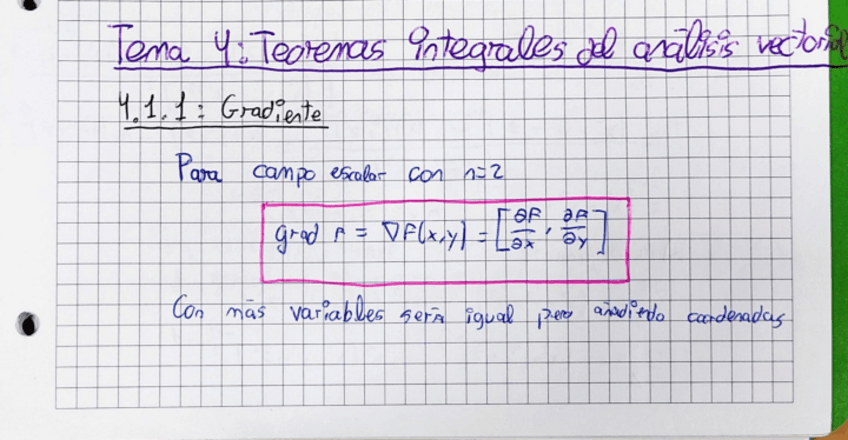 Tema 4: Teoremas integrales del análisis vectorial
4.1.1: Gradiente
Para campo escalar con n=2
grad F = ∇F(x,y) = [∂F/∂x, ∂F/∂y]
Con más variables será igual pero añadiendo coordenadas